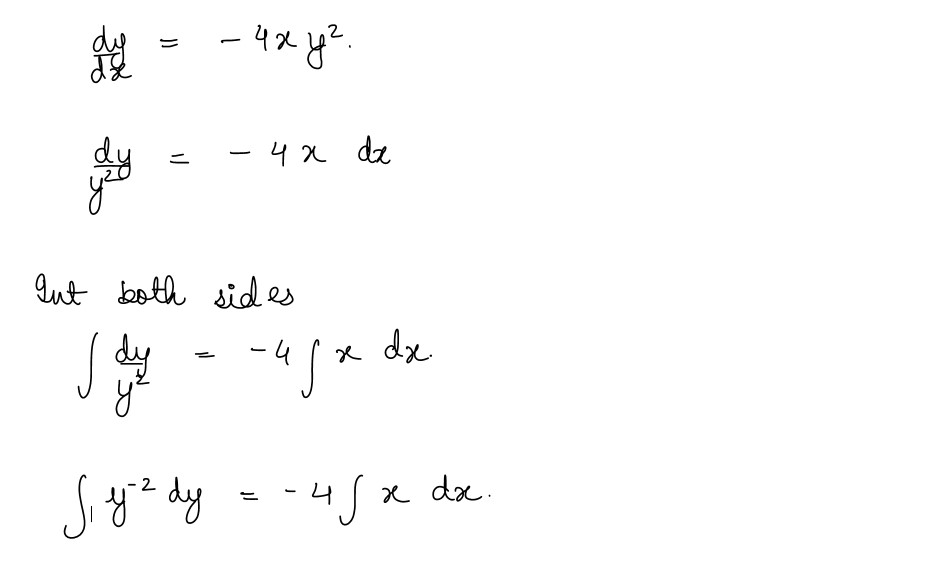 dy/dx = - 4x y².
dy/y² = - 4x dx
Int both sides
∫ dy/y² = -4 ∫ x dx.
∫ y⁻² dy = -4 ∫ x dx.